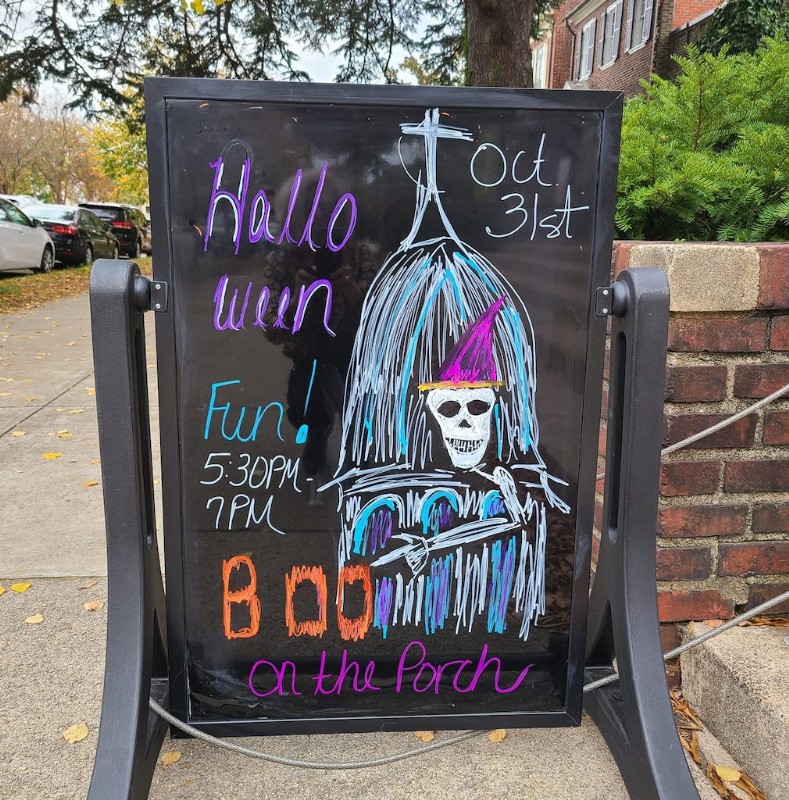 Hallo
ween
Oct
31st
Fun!
5:30PM-
7PM
Boo
on the Porch